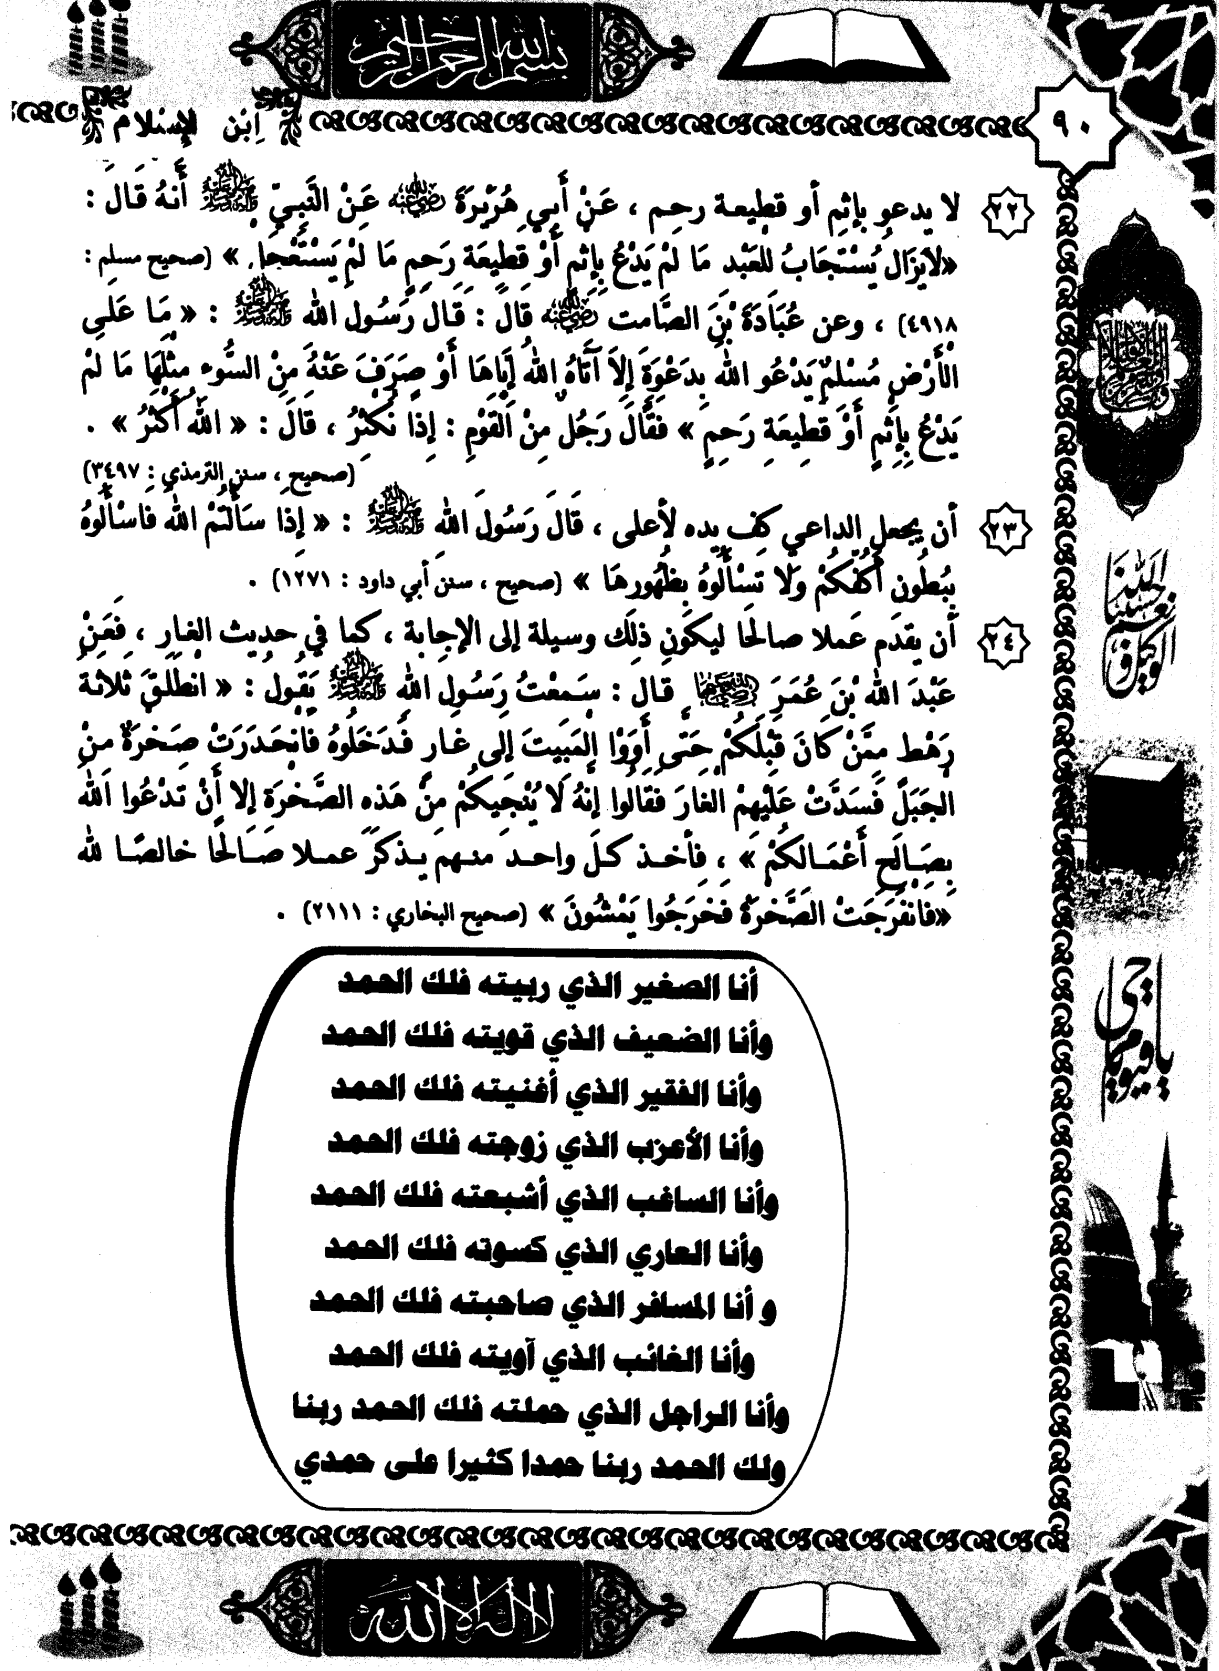 بسم الله الرحمن الرحيم
ابْن الإسْلام
٩٠
٢٢ لا يدعو بإثم أو قطيعة رحم ، عَنْ أَبِي هُرَيْرَةَ رضي الله عنه عَنْ النَّبِيِّ ﷺ أَنهُ قَالَ :
«لاَيَزَالُ يُسْتَجَابُ لِلْعَبْدِ مَا لَمْ يَدْعُ بِإِثْمٍ أَوْ قَطِيعَةِ رَحِمٍ مَا لَمْ يَسْتَعْجِلْ » (صحيح مسلم :
٤٩١٨) ، وعن عُبَادَةَ بْنَ الصَّامت رضي الله عنه قَالَ : قَالَ رَسُولَ الله ﷺ : « مَا عَلَى
الْأَرْضِ مُسْلِمٌ يَدْعُو الله بِدَعْوَةٍ إِلاَ آتَاهُ اللهُ إِيَّاهَا أَوْ صَرَفَ عَنْهُ مِنْ السُّوءِ مِثْلَهَا مَا لَمْ
يَدْعُ بِإِثْمٍ أَوْ قَطِيعَةِ رَحِمٍ » فقَالَ رَجُلٌ مِنْ الْقَوْمِ : إِذًا نُكْثِرُ ، قَالَ : « اللهُ أَكْثَرُ » .
(صحيح ، سنن الترمذي : ٣٤٩٧)
٢٣ أن يجعل الداعي كف يده لأعلى ، قَالَ رَسُولَ الله ﷺ : « إِذَا سَأَلْتُمْ اللهَ فَاسْأَلُوهُ
بِبُطُونِ أَكُفِّكُمْ وَلَا تَسْأَلُوهُ بِظُهُورِهَا » (صحيح ، سنن أبي داود : ١٢٧١) .
٢٤ أن يقدم عَملا صالحًا ليكون ذلك وسيلة إلى الإجابة ، كما في حديث الغار ، فعَنْ
عَبْدَ الله بْنَ عُمَرَ رضي الله عنهما قال : سَمِعْتُ رَسُولَ اللهِ ﷺ يَقُولُ : « انْطَلَقَ ثَلَاثَةُ
رَهْطٍ مِمَّنْ كَانَ قَبْلَكُمْ حَتَّى أَوَوْا الْمَبِيتَ إِلَى غَارٍ فَدَخَلُوهُ فَانْحَدَرَتْ صَخْرَةٌ مِنْ
الْجَبَلِ فَسَدَّتْ عَلَيْهِمْ الْغَارَ فَقَالُوا إِنهُ لَا يُنْجِيكُمْ مِنْ هَذِهِ الصَّخْرَةِ إِلا أَنْ تَدْعُوا اللهَ
بِصَالِحِ أَعْمَالِكُمْ » ، فأخذ كل واحد منهم يذكر عملا صَالحًا خالصًا لله
«فَانْفَرَجَتْ الصَّخْرَةُ فَخَرَجُوا يَمْشُونَ » (صحيح البخاري : ٢١١١) .
أنا الصغير الذي ربيته فلك الحمد
وأنا الضعيف الذي قويته فلك الحمد
وأنا الفقير الذي أغنيته فلك الحمد
وأنا الأعزب الذي زوجته فلك الحمد
وأنا الساغب الذي أشبعته فلك الحمد
وأنا العاري الذي كسوته فلك الحمد
و أنا المسافر الذي صاحبته فلك الحمد
وأنا الغائب الذي آويته فلك الحمد
وأنا الراجل الذي حملته فلك الحمد ربنا
ولك الحمد ربنا حمدا كثيرا على حمدي
حسبنا الله ونعم الوكيل
يا حي يا قيوم
لا إله إلا الله